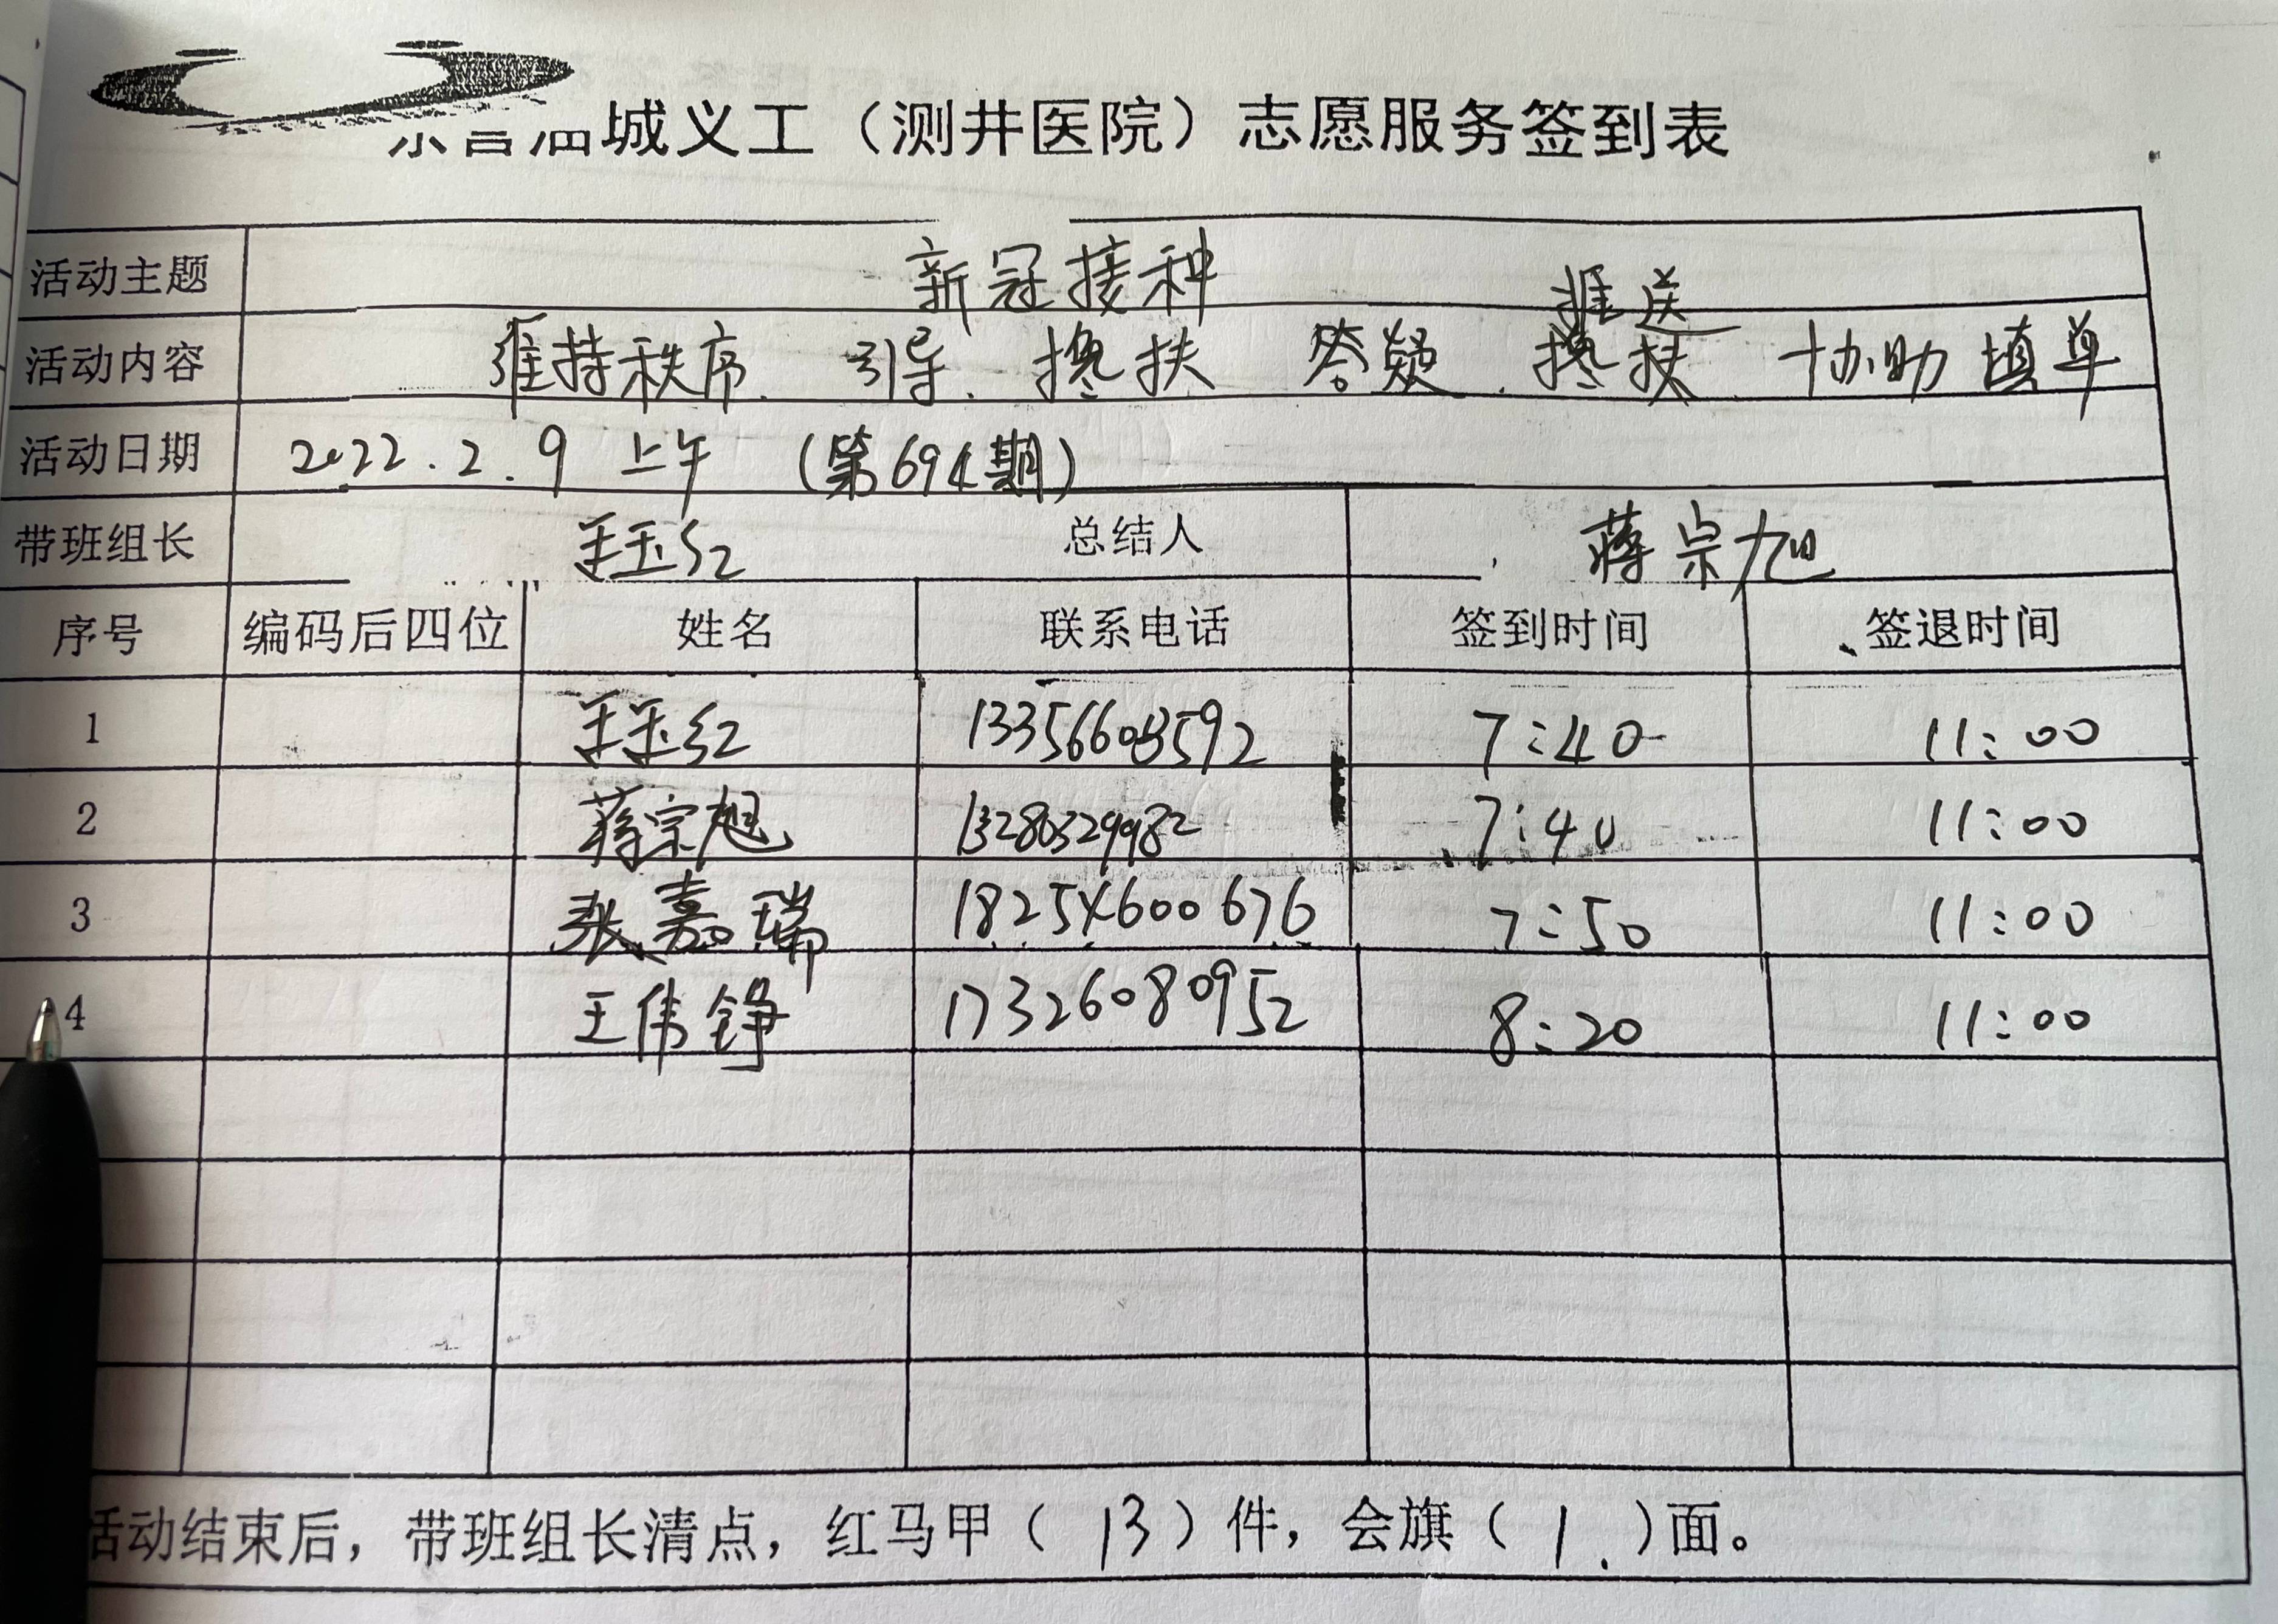 城义工（测井医院）志愿服务签到表
活动主题 新冠接种
推送
活动内容 维持秩序、引导、搀扶 答疑、搀扶、协助填单
活动日期 2022.2.9 上午 (第694期)
带班组长 王玉红 总结人 蒋宗旭
序号 编码后四位 姓名 联系电话 签到时间 签退时间
1 王玉红 13356608592 7:40 11:00
2 蒋宗旭 13280329982 7:40 11:00
3 张嘉瑞 18254600676 7:50 11:00
4 王伟铮 17326080952 8:20 11:00
活动结束后，带班组长清点，红马甲（13）件，会旗（1.）面。